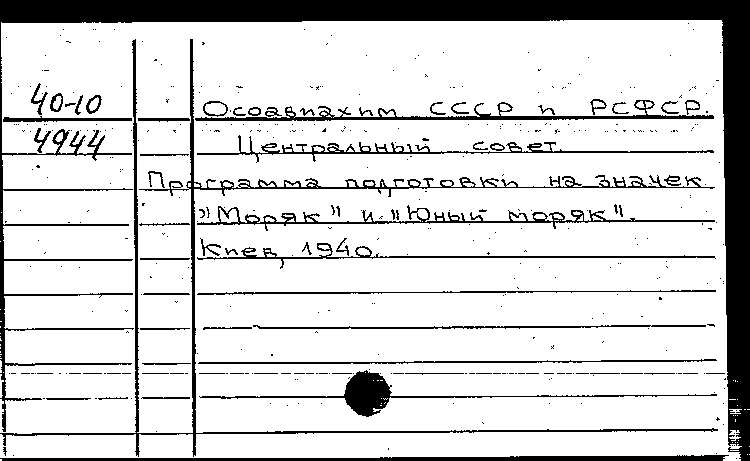 40-10
4944
Осоавиахим СССР и РСФСР.
Центральный совет.
Программа подготовки на значек
"Моряк" и "Юный моряк".
Киев, 1940.